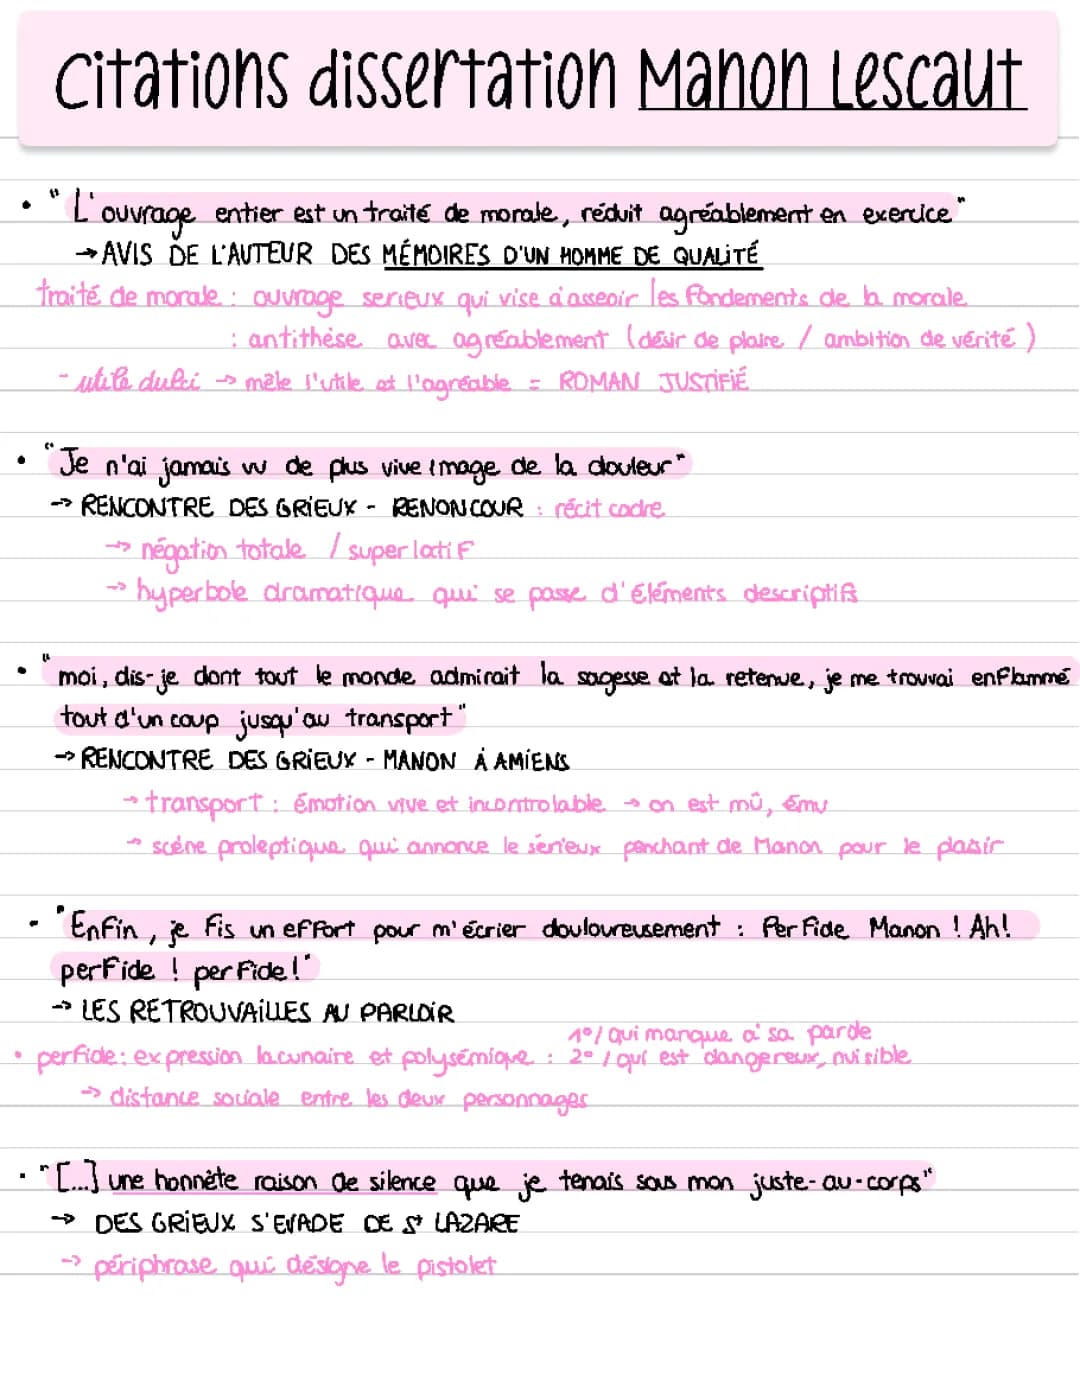 Citations dissertation Manon Lescaut
• "L'ouvrage entier est un traité de morale, réduit agréablement en exercice"
→ AVIS DE L'AUTEUR DES MÉMOIRES D'UN HOMME DE QUALITÉ
traité de morale : ouvrage serieux qui vise à asseoir les fondements de la morale
: antithèse avec agréablement (désir de plaire / ambition de vérité)
- utile dulci → mêle l'utile et l'agréable = ROMAN JUSTIFIÉ
• "Je n'ai jamais vu de plus vive image de la douleur"
→ RENCONTRE DES GRIEUX - RENONCOUR : récit cadre
→ négation totale / superlatif
→ hyperbole dramatique qui se passe d'éléments descriptifs
• "moi, dis-je dont tout le monde admirait la sagesse et la retenue, je me trouvai enflammé
tout d'un coup jusqu'au transport"
→ RENCONTRE DES GRIEUX - MANON À AMIENS
→ transport : émotion vive et incontrolable → on est mû, ému
→ scène proleptique qui annonce le sérieux penchant de Manon pour le plaisir
- "Enfin, je fis un effort pour m'écrier douloureusement : Perfide Manon ! Ah!
perfide ! perfide !"
→ LES RETROUVAILLES AU PARLOIR
1°/ qui manque à sa parole
• perfide : expression lacunaire et polysémique : 2° / qui est dangereux, nuisible
→ distance sociale entre les deux personnages
• "[...] une honnête raison de silence que je tenais sous mon juste-au-corps"
→ DES GRIEUX S'EVADE DE St LAZARE
→ périphrase qui désigne le pistolet